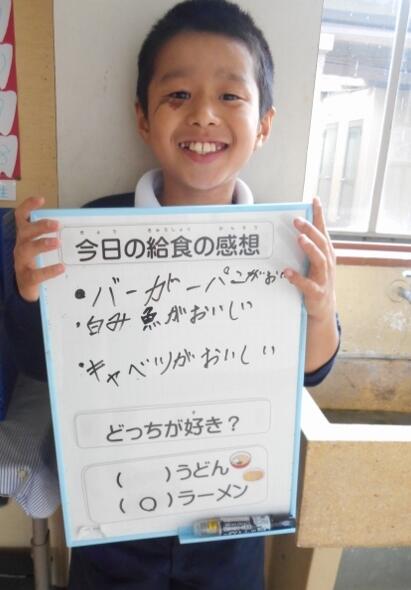 今日の給食の感想
・バーガーパンがおい
・白み魚がおいしい
・キャベツがおいしい
どっちが好き？
(　　)うどん
(○)ラーメン